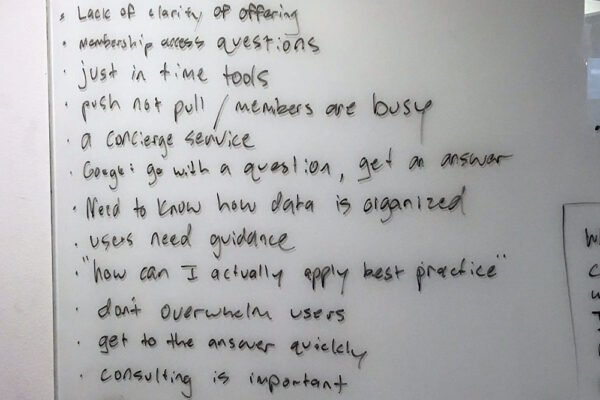 • Lack of clarity of offering
• membership access questions
• just in time tools
• push not pull / members are busy
• a concierge service
• Google: go with a question, get an answer
• Need to know how data is organized
• users need guidance
• "how can I actually apply best practice"
• don't overwhelm users
• get to the answer quickly
• consulting is important